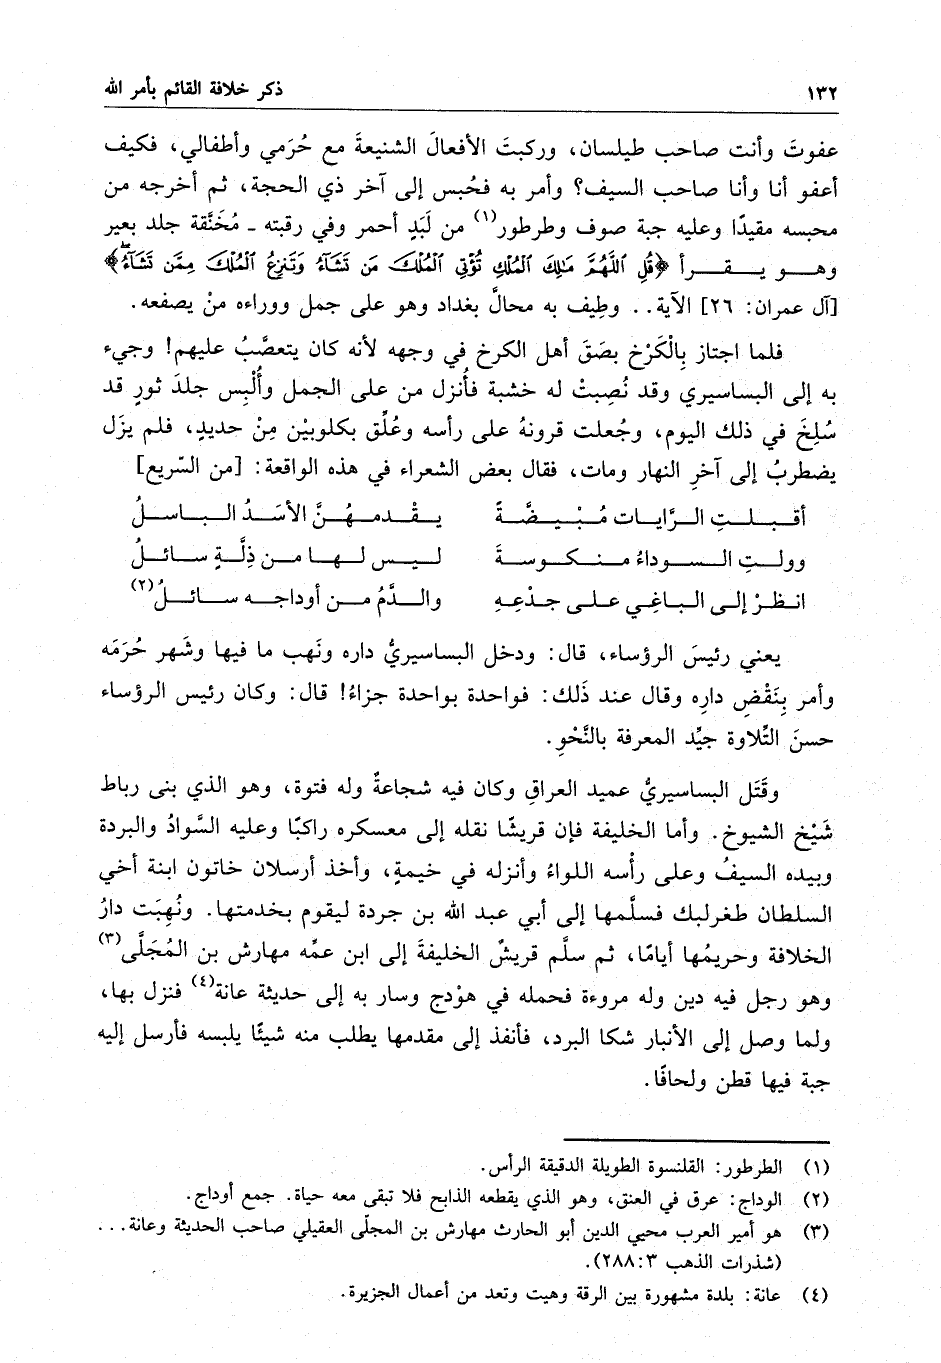 ١٣٢ ذكر خلافة القائم بأمر الله
عفوتَ وأنت صاحب طيلسان، وركبتَ الأفعالَ الشنيعةَ مع حُرَمي وأطفالي، فكيف
أعفو أنا وأنا صاحب السيف؟ وأمر به فحُبس إلى آخر ذي الحجة، ثم أخرجه من
محبسه مقيدًا وعليه جبة صوف وطرطور(١) من لَبَدٍ أحمر وفي رقبته ـ مُخَنَّقة جلد بعير
وهـو يـقـرأ ﴿قُلِ ٱللَّهُمَّ مَـٰلِكَ ٱلْمُلْكِ تُؤْتِي ٱلْمُلْكَ مَن تَشَآءُ وَتَنزِعُ ٱلْمُلْكَ مِمَّن تَشَآءُۖ﴾
[آل عمران: ٢٦] الآية.. وطِيف به محالَّ بغداد وهو على جمل ووراءه منْ يصفعه.
فلما اجتاز بِالْكَرْخ بصَقَ أهل الكرخ في وجهه لأنه كان يتعصَّبُ عليهم! وجيء
به إلى البساسيري وقد نُصِبتْ له خشبة فأُنزل من على الجمل وأُلْبِس جلدَ ثورٍ قد
سُلِخَ في ذلك اليوم، وجُعلت قرونهُ على رأسه وعُلِّق بكلوبيْن مِنْ حديدٍ، فلم يزَل
يضطربُ إلى آخرِ النهار ومات، فقال بعض الشعراء في هذه الواقعة: [من السّريع]
أقـبـلـتِ الـرَّايـات مُـبْـيـضَّـةً يـقْـدمـهُـنَّ الأسَـدُ الـبـاسـلُ
وولـتِ الـسـوداءُ مـنـكـوسـةَ لـيـس لـهـا مـن ذِلَّـةٍ سـائـلُ
انـظـرْ إلـى الـباغِـي عـلـى جـذْعِـهِ والـدَّمُ مـن أوداجـه سـائـلُ(٢)
يعني رئيسَ الرؤساء، قال: ودخل البساسيريُّ داره ونَهب ما فيها وشَهر حُرَمَه
وأمر بِنَقْضِ دارِه وقال عند ذَلك: فواحدة بواحدة جزاءُ! قال: وكان رئيس الرؤساء
حسنَ التِّلاوة جيِّد المعرفة بالنَّحْوِ.
وقَتَل البساسيريُّ عميد العراقِ وكان فيه شجاعةٌ وله فتوة، وهو الذي بنى رباط
شَيْخ الشيوخ. وأما الخليفة فإن قريشًا نقله إلى معسكره راكبًا وعليه السَّوادُ والبردة
وبيده السيفُ وعلى رأْسه اللواءُ وأنزله في خيمةٍ، وأخذ أرسلان خاتون ابنة أخي
السلطان طغرلبك فسلَّمها إلى أبي عبد الله بن جردة ليقوم بخدمتها. ونُهِبَت دارُ
الخلافة وحريمُها أيامًا، ثم سلَّم قريشٌ الخليفةَ إلى ابن عمِّه مهارش بن المُجَلَّى(٣)
وهو رجل فيه دين وله مروءة فحمله في هوْدج وسار به إلى حديثة عانة(٤) فنزل بها،
ولما وصل إلى الأنبار شكا البرد، فأنفذ إلى مقدمها يطلب منه شيئًا يلبسه فأرسل إليه
جبة فيها قطن ولحافًا.
(١) الطرطور: القلنسوة الطويلة الدقيقة الرأس.
(٢) الوداج: عرق في العنق، وهو الذي يقطعه الذابح فلا تبقى معه حياة. جمع أوداج.
(٣) هو أمير العرب محيي الدين أبو الحارث مهارش بن المجلّى العقيلي صاحب الحديثة وعانة...
(شذرات الذهب ٣:٢٨٨).
(٤) عانة: بلدة مشهورة بين الرقة وهيت وتعد من أعمال الجزيرة.